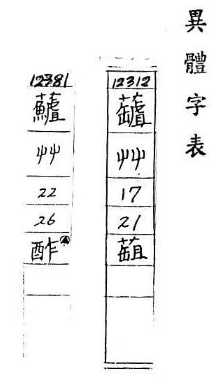 異體字表
12312
艸
17
21
12381
艸
22
26
酢